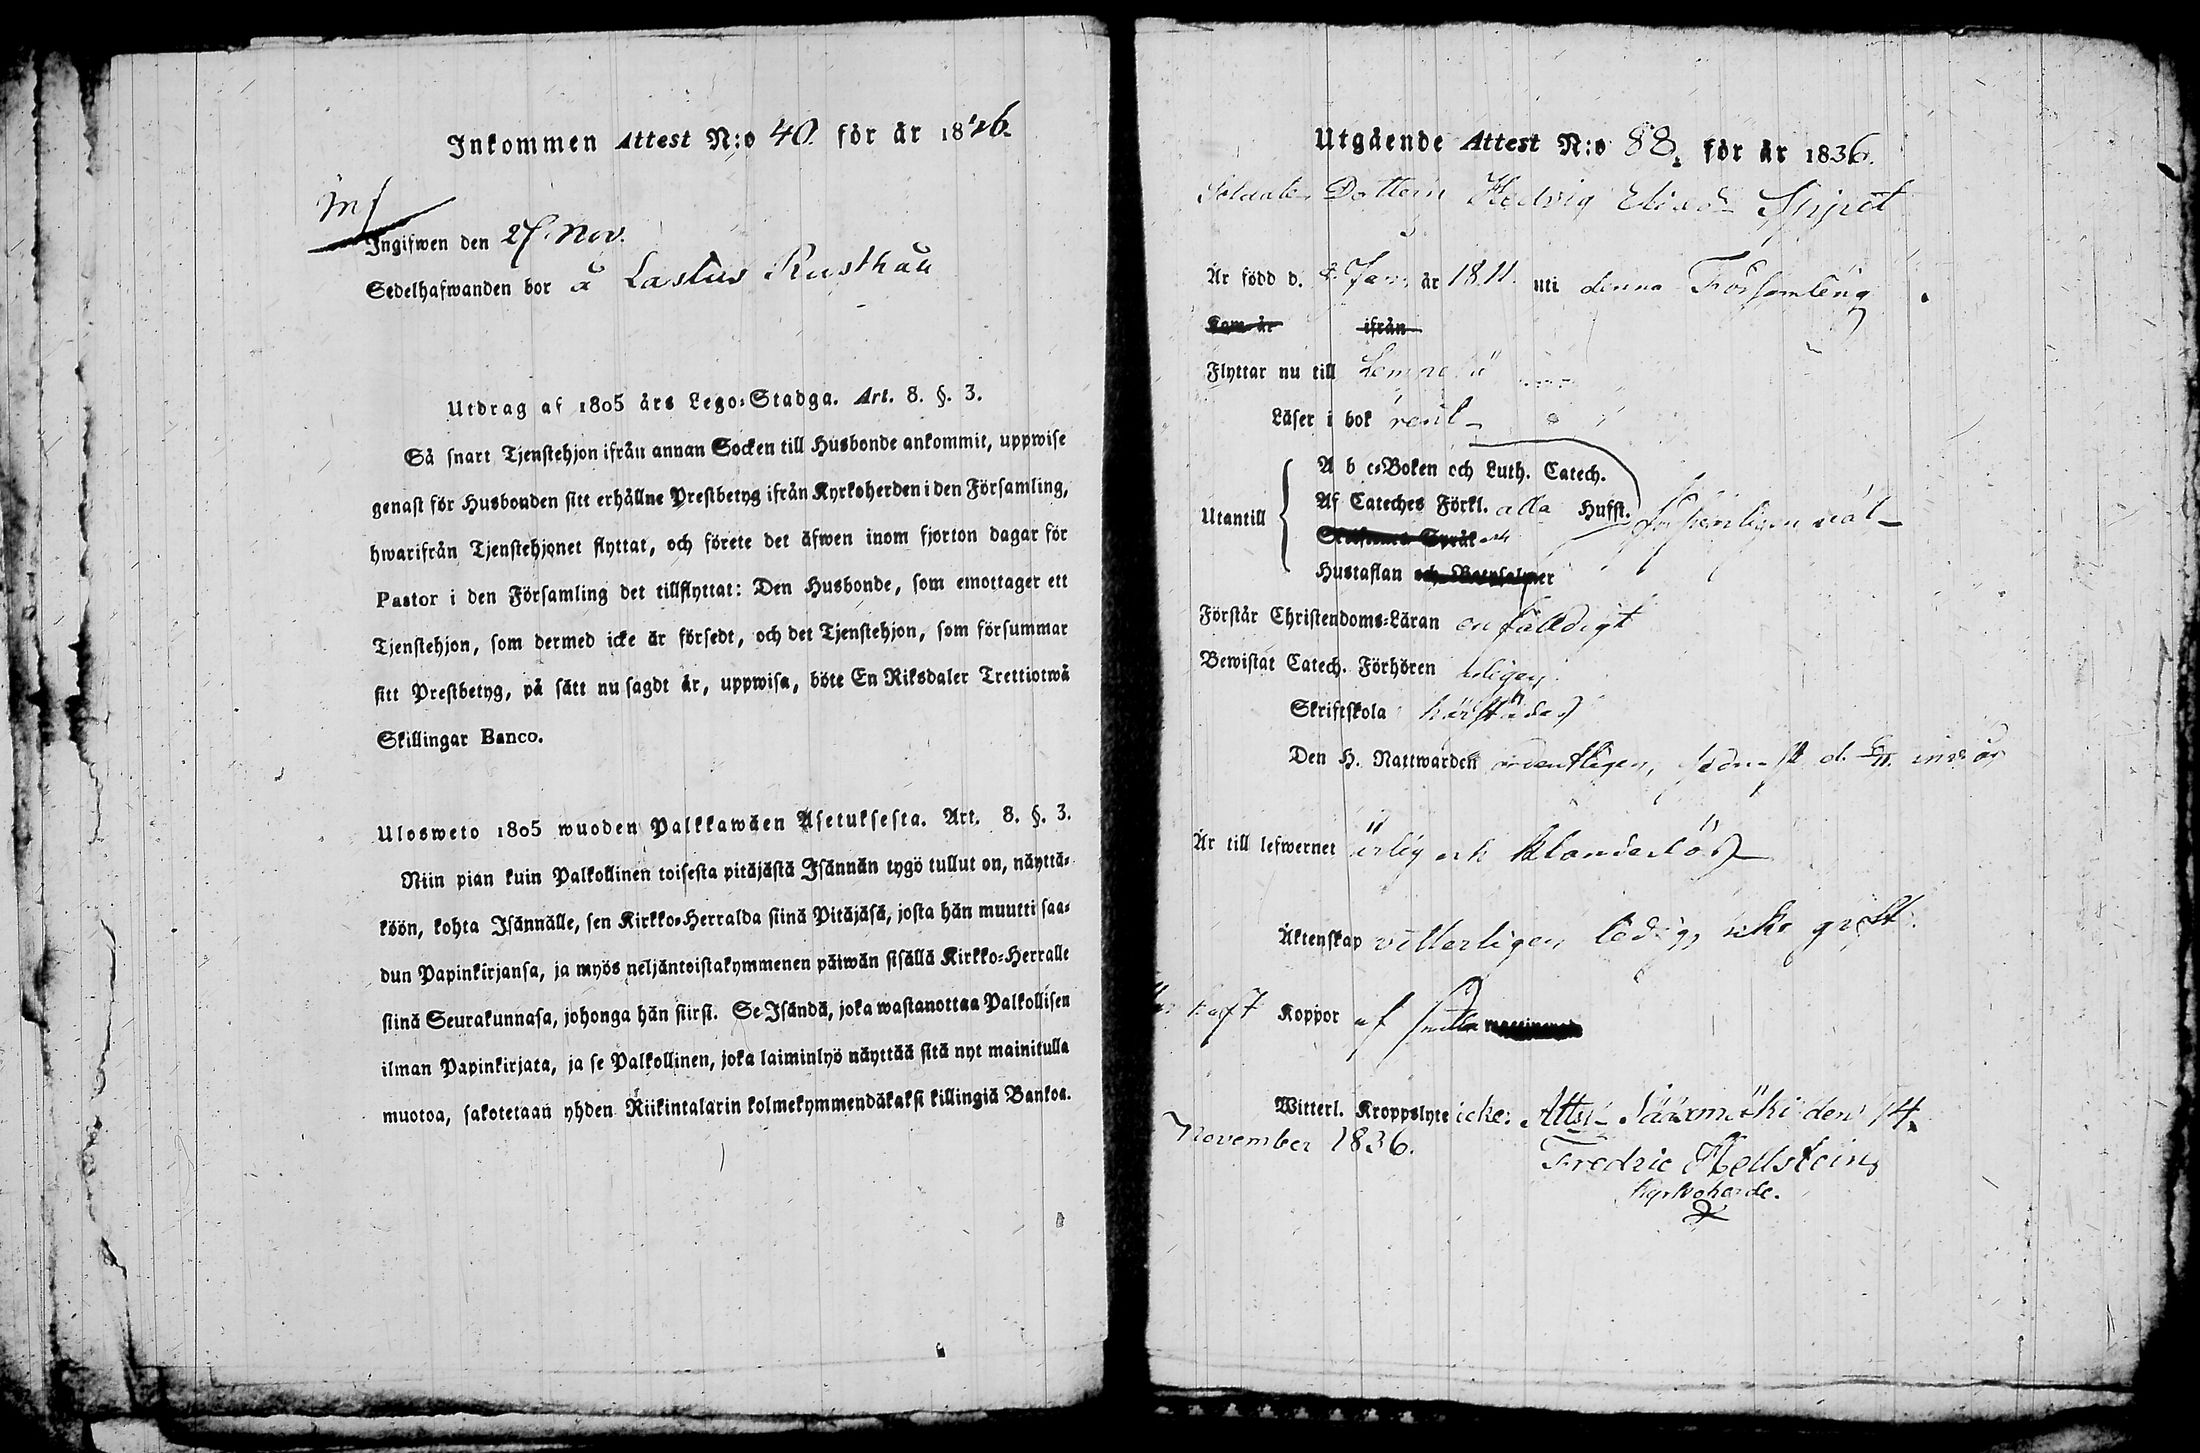 Inkommen Attest N:o 40. för år 1836.
Inf
Ingifwen den 27 Nov.
Sedelhafwanden bor å Lastus Rusthåll
Utdrag af 1805 års Lego-Stadga. Art. 8. §. 3.
Så snart Tjenstehjon ifrån annan Socken till Husbonde ankommit, uppwise
genast för Husbonden sitt erhållne Prestbetyg ifrån Kyrkoherden i den Församling,
hwarifrån Tjenstehjonet flyttat, och förete det äfwen inom fjorton dagar för
Pastor i den Församling det tillflyttat: Den Husbonde, som emottager ett
Tjenstehjon, som dermed icke är försedt, och det Tjenstehjon, som försummar
sitt Prestbetyg, på sätt nu sagdt är, uppwisa, böte En Riksdaler Trettiotwå
Skillingar Banco.
Ulosweto 1805 wuoden Palkkawäen Asetuksesta. Art. 8. §. 3.
Niin pian kuin Palkollinen toisesta pitäjästä Isännän tygö tullut on, näyttä-
köön, kohta Isännälle, sen Kirkko-Herralda siinä Pitäjäsä, josta hän muutti saa-
dun Papinkirjansa, ja myös neljäntoistakymmenen päiwän sisällä Kirkko-Herralle
siinä Seurakunnasa, johonga hän siirsi. Se Isändä, joka wastanottaa Palkollisen
ilman Papinkirjata, ja se Palkollinen, joka laiminlyö näyttää sitä nyt mainitulla
muotoa, sakotetaan yhden Riikintalarin kolmekymmendäkaksi killingiä Bankoa.
Utgående Attest N:o 88. för år 1836.
Soldats Dottern Hedvig
Är född d. Jan. år 1811. uti denna Församling
Kom år ifrån
Flyttar nu till Lempälä
Läser i bok rent
A b c-Boken och Luth. Catech.
Utantill Af Cateches Förkl. alla Hufst. försvarligen
och
Hustaflan
Förstår Christendoms-Läran enfaldigt
Bewistat Catech. Förhören
Skriftskola härstädes
Den H. Nattwarden ordentligen, sednast d.
Är till lefwernet ärlig och klanderlös
Äktenskap vitterligen ledig, icke gift.
Har haft Koppor af
Witterl. Kroppslyte icke: Attest. Sääxmäki den 14.
November 1836.
Fredric Hellstein,
Kyrkoherde.